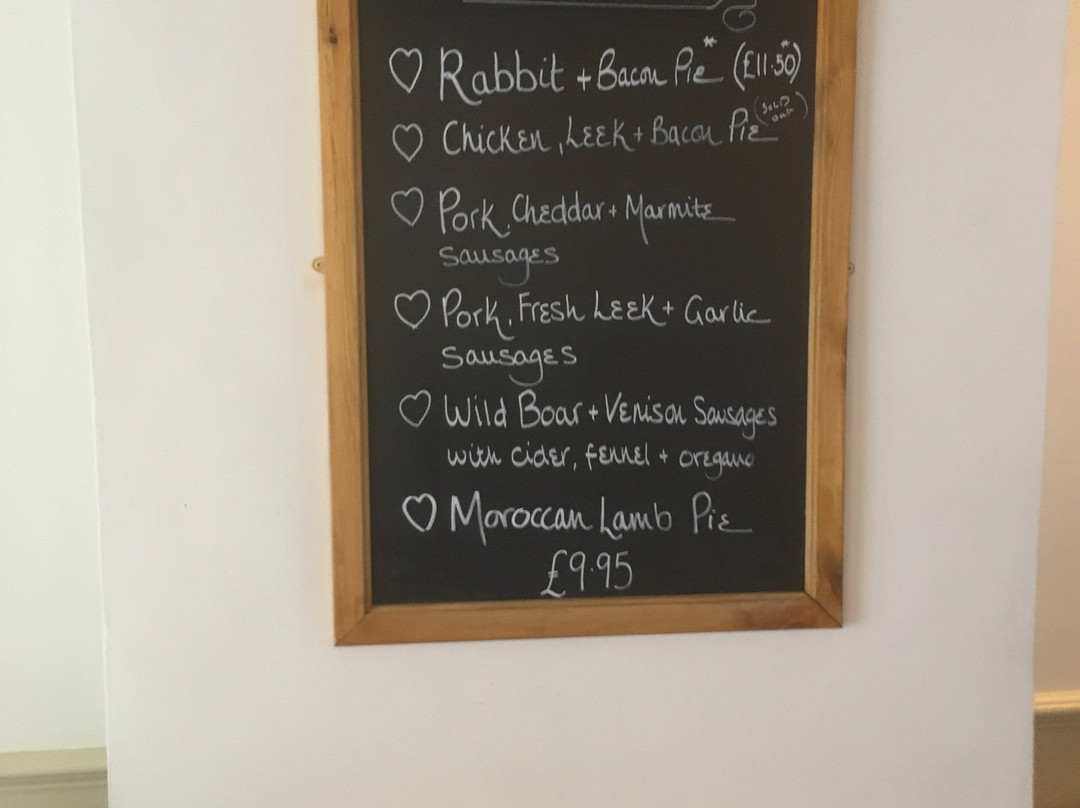 Rabbit + Bacon Pie* (£11.50*)
Chicken, Leek + Bacon Pie (SOLD OUT)
Pork, Cheddar + Marmite
Sausages
Pork, Fresh Leek + Garlic
Sausages
Wild Boar + Venison Sausages
with cider, fennel + oregano
Moroccan Lamb Pie
£9.95